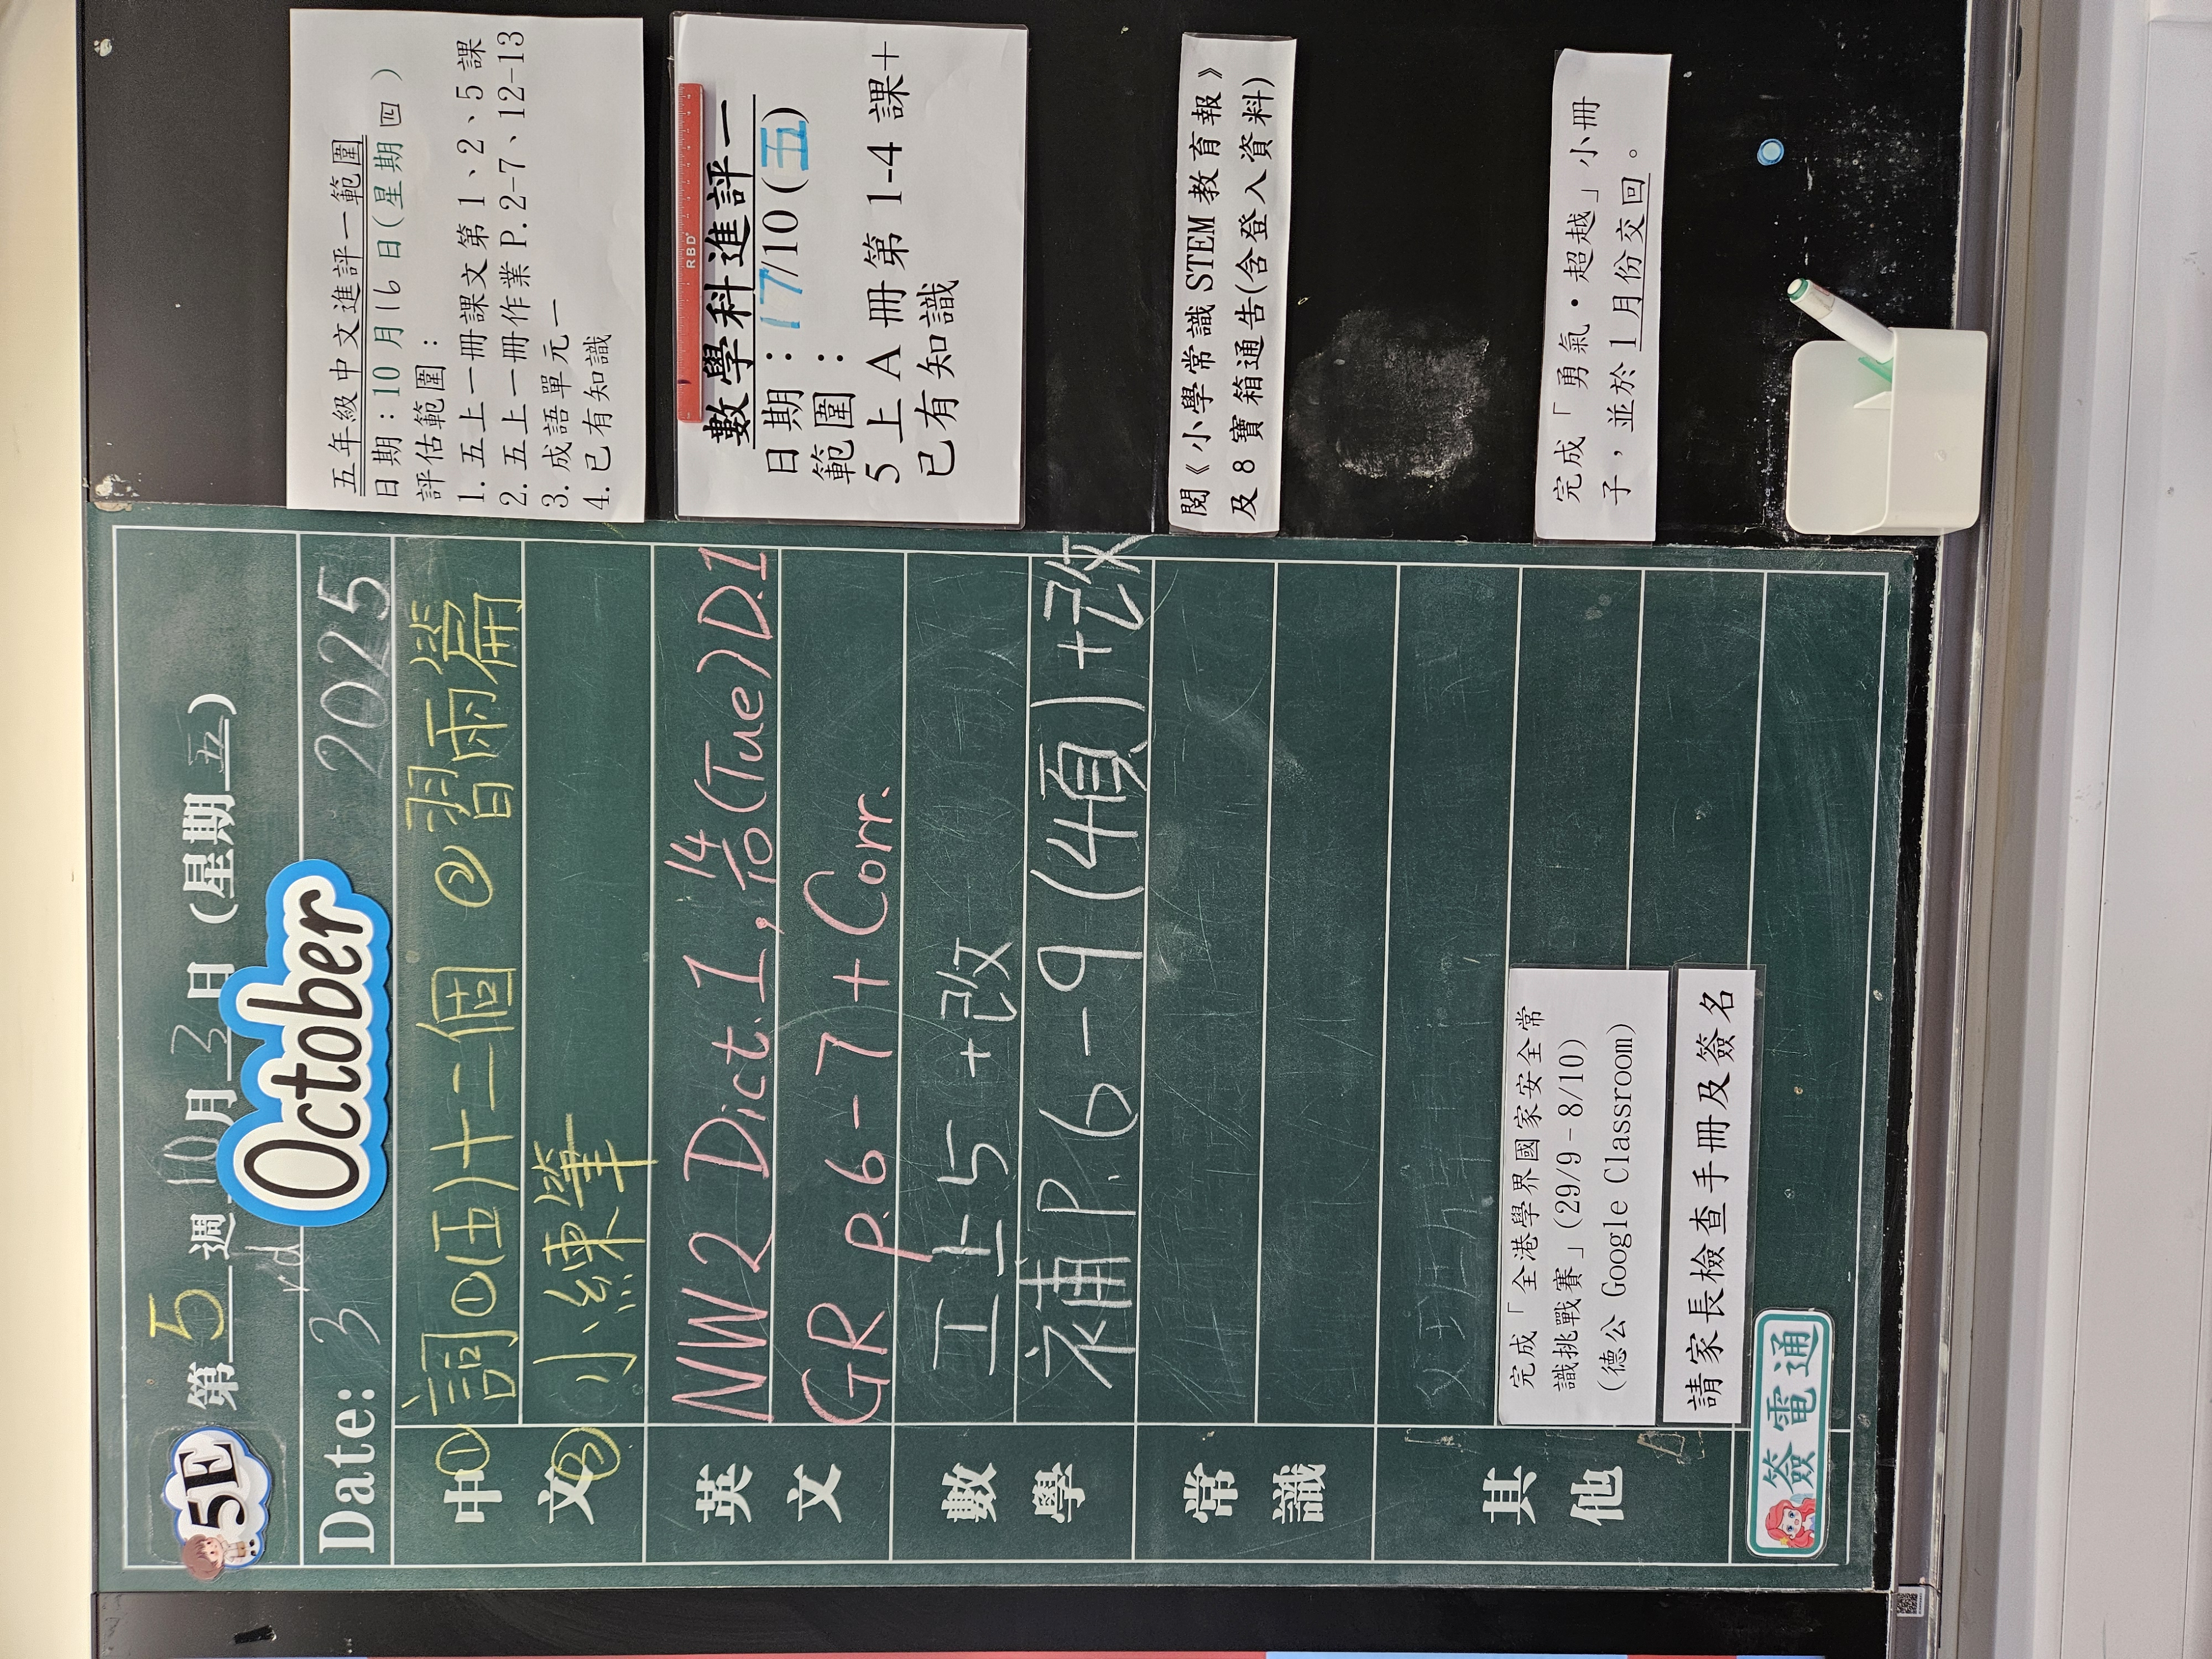 5E
第 5 週 10 月 3 日 (星期 五)
Date: 3rd October 2025
中文
① 詞①(五)十二個 ②習雨篇
② 小練筆
英文
NW2 Dict.1, 14/10 (Tue) D.1
GR P.6-7 + Corr.
數學
五上5+改
補P.6-9(4頁)+改
常識
其他
完成「全港學界國家安全常
識挑戰賽」(29/9-8/10)
(德公 Google Classroom)
請家長檢查手冊及簽名
簽電通
五年級中文進評一範圍
日期:10月16日(星期四)
評估範圍:
1.五上一冊課文第1、2、5課
2.五上一冊作業P.2-7、12-13
3.成語單元一
4.已有知識
RBD
數學科進評一
日期:17/10(五)
範圍:
5上A冊第1-4課+
已有知識
閱《小學常識STEM教育報》
及8寶箱通告(含登入資料)
完成「勇氣・超越」小冊
子,並於1月份交回。